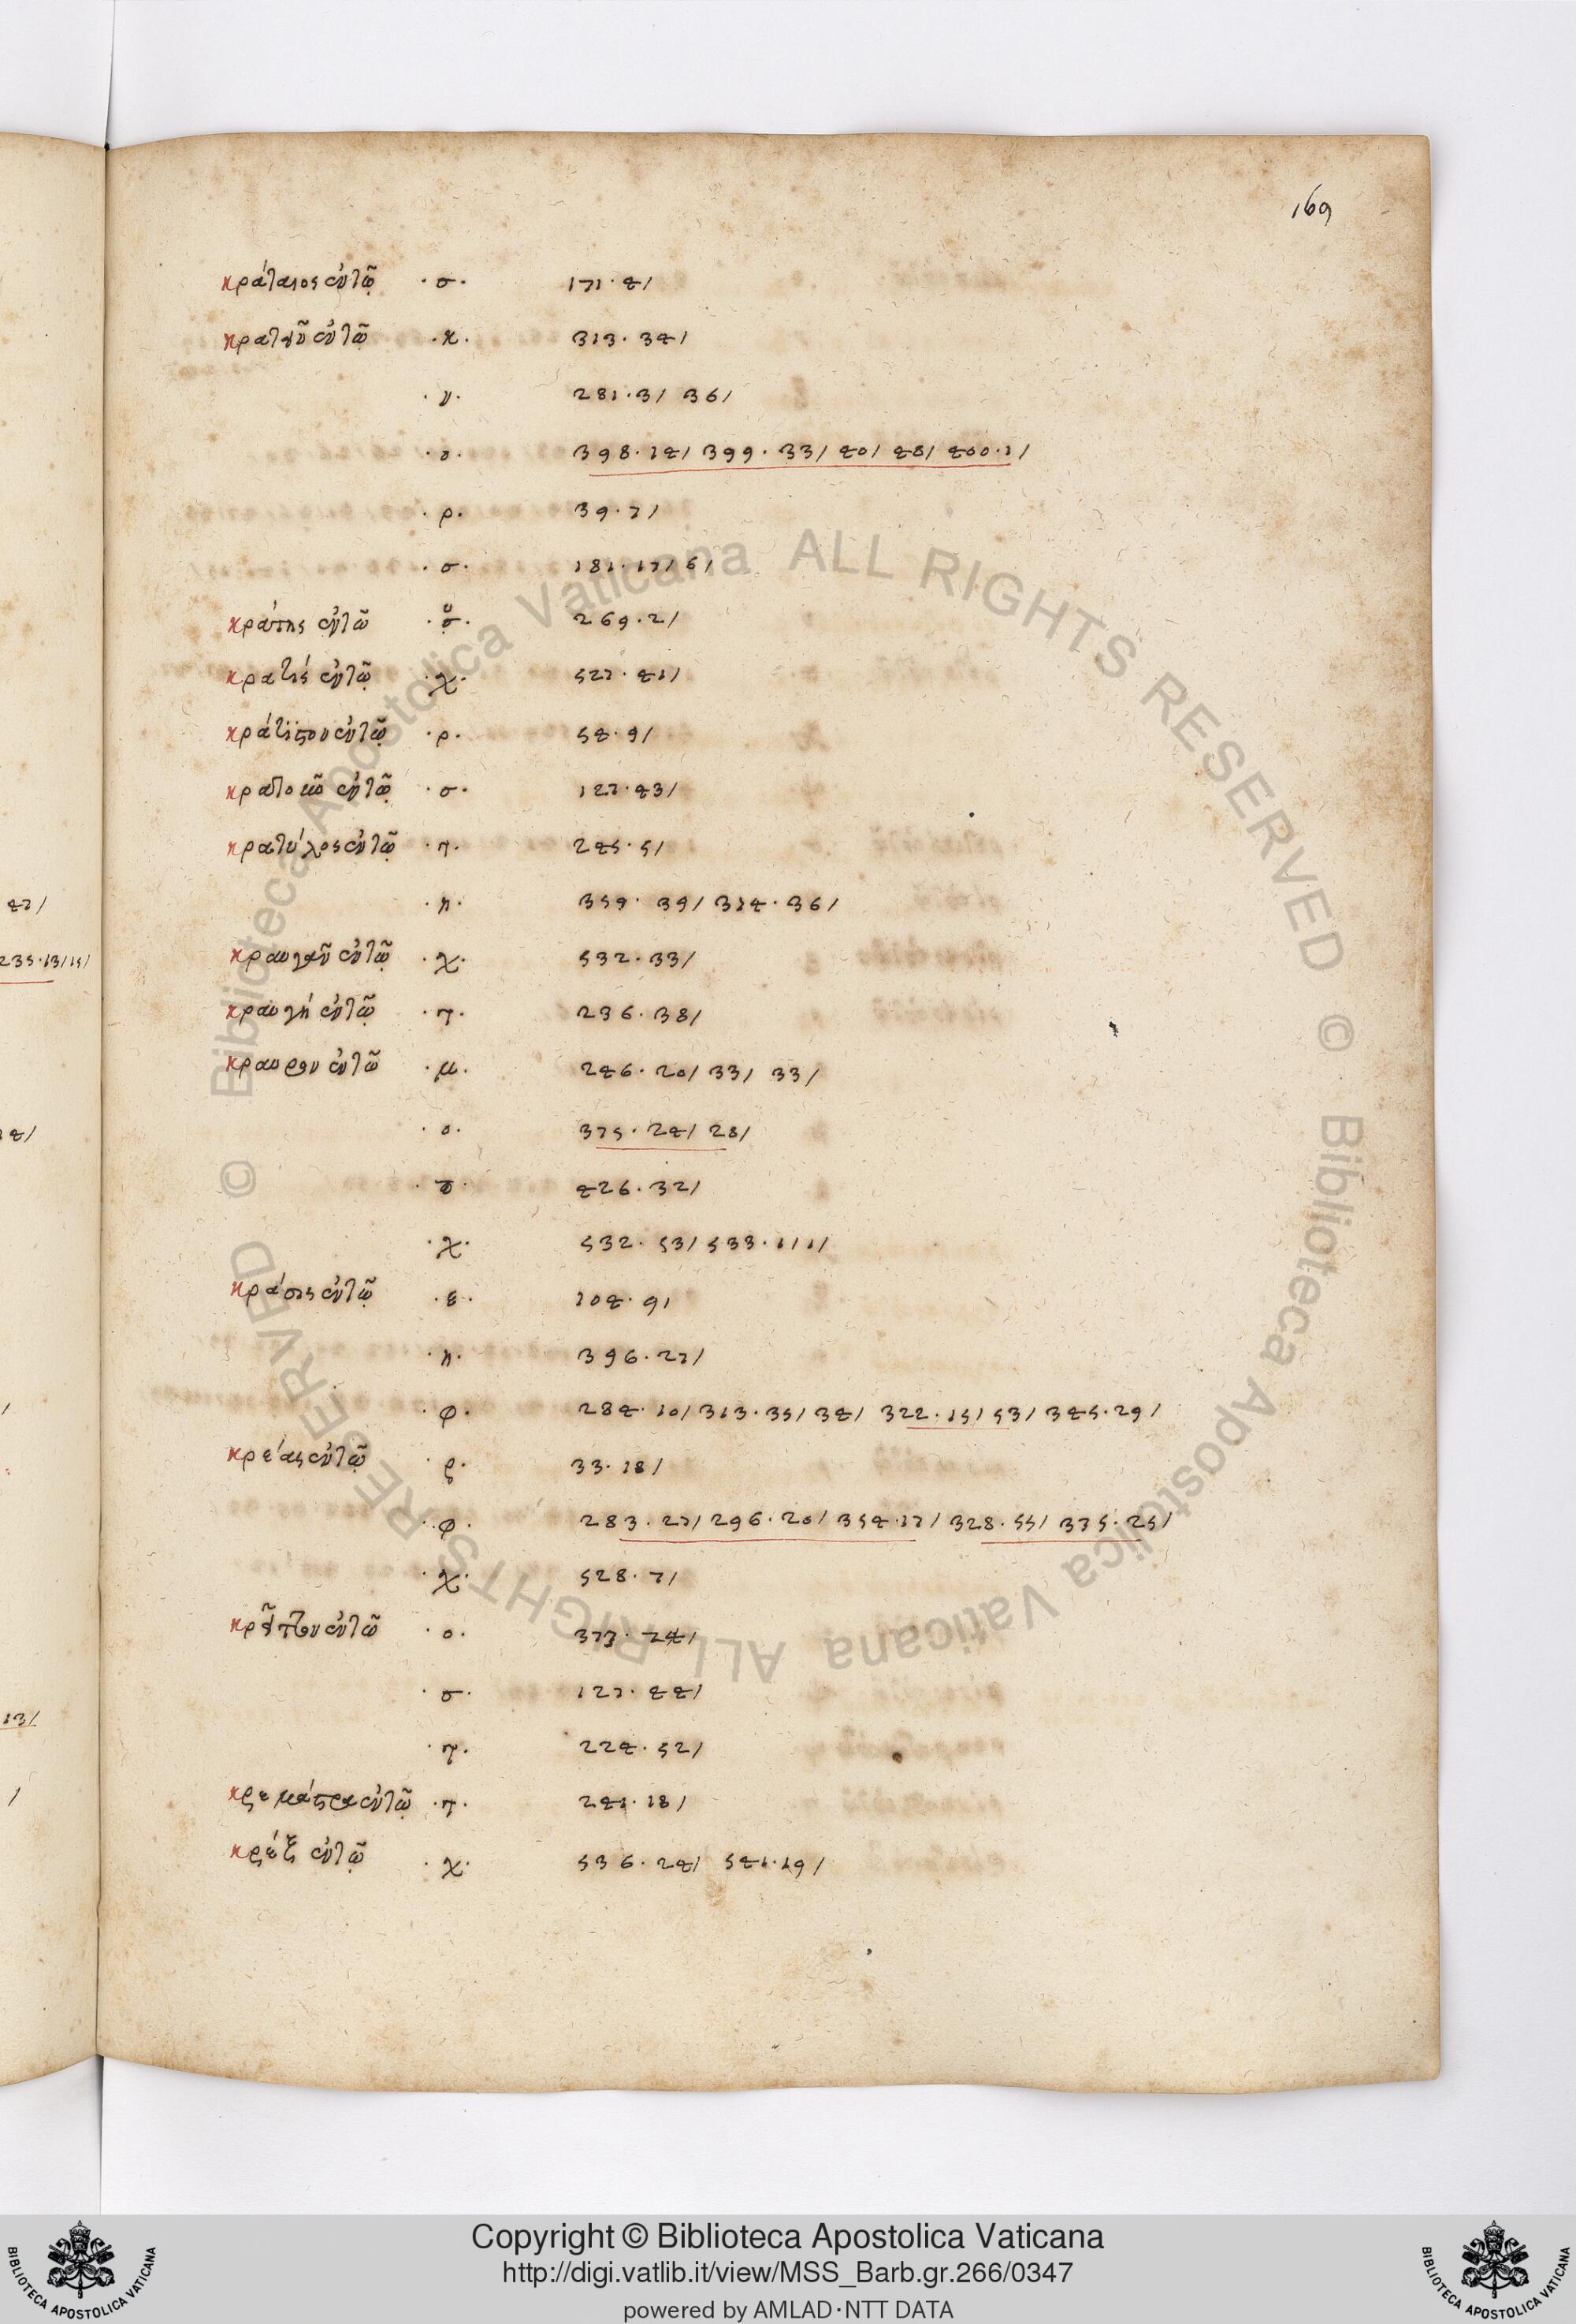 169
κράταιος ἐν τῷ · σ · 171 · 4/
κρατεῖν ἐν τῷ · κ · 313 · 34/
· ν · 281 · 3/ 36/
· ο · 398 · 14/ 399 · 33/ 40/ 48/ 400 · 1/
· ρ · 39 · 7/
· σ · 181 · 17/ 6/
κράτης ἐν τῷ 269 · 2/
κρατὶς ἐν τῷ · χ · 527 · 41/
κράτιππου ἐν τῷ · ρ · 54 · 9/
ἐν τῷ · σ · 127 · 43/
κρατύλος ἐν τῷ · τ · 245 · 5/
· η · 359 · 39/ 314 · 36/
κραυγὴν ἐν τῷ · χ · 532 · 33/
κραυγή ἐν τῷ · τ · 236 · 38/
κραυρον ἐν τῷ · μ · 246 · 20/ 33/ 33/
· ο · 375 · 24/ 28/
426 · 32/
· χ · 532 · 53/ 533 · 1/ 1/
κράσις ἐν τῷ · ε · 104 · 9/
· η · 396 · 27/
· φ · 284 · 10/ 313 · 35/ 34/ 322 · 15/ 53/ 345 · 29/
κρέας ἐν τῷ · ρ · 33 · 18/
· φ · 283 · 27/ 296 · 20/ 354 · 17/ 328 · 55/ 375 · 25/
· χ · 528 · 7/
κρεῖττον ἐν τῷ · ο · 373 · 24/
· σ · 127 · 44/
· τ · 224 · 52/
κρεμάστρα ἐν τῷ · τ · 241 · 18/
κρέξ ἐν τῷ · χ · 536 · 24/ 541 · 19/
47/
235 · 13/ 15/
4/
13/
Copyright © Biblioteca Apostolica Vaticana
http://digi.vatlib.it/view/MSS_Barb.gr.266/0347
powered by AMLAD·NTT DATA
BIBLIOTECA APOSTOLICA VATICANA
BIBLIOTECA APOSTOLICA VATICANA
© Biblioteca Apostolica Vaticana ALL RIGHTS RESERVED
© Biblioteca Apostolica Vaticana ALL RIGHTS RESERVED